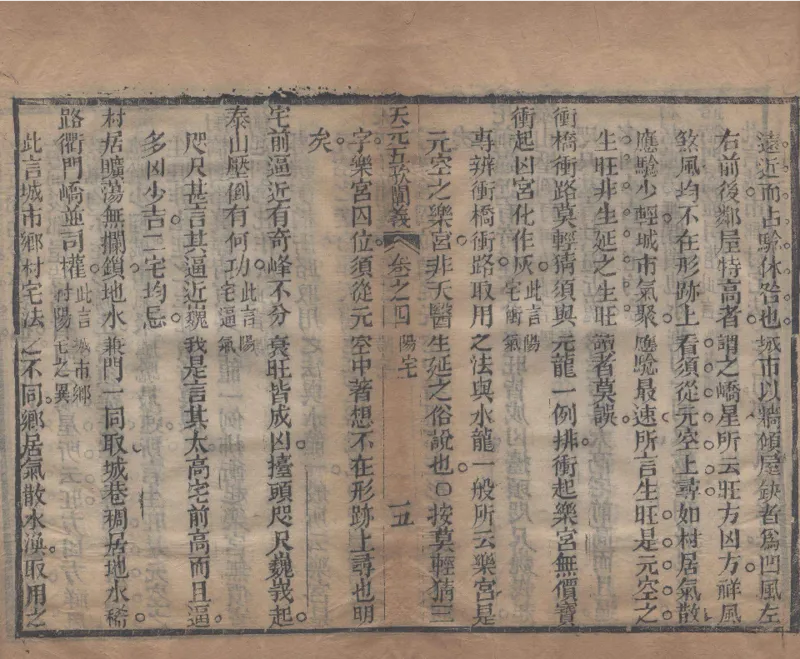 遠近而占驗休咎也城市以牆傾屋缺者爲凹風左
右前後鄰屋特高者謂之嶠星所云旺方凶方祥風
煞風均不在形跡上看須從元空上尋如村居氣散
應驗少輕城市氣聚應驗最速所言生旺是元空之
生旺非生延之生旺讀者莫誤
衝橋衝路莫輕猜須與元龍一例排衝起樂宮無價寶
衝起凶宮化作灰此言陽宅衝氣
專辨衝橋衝路取用之法與水龍一般所云樂宮是
元空之樂宮非天醫生延之俗說也○按莫輕猜三
字樂宮囚位須從元空中著想不在形跡上尋也明
矣
天元五歌闡義 卷之四 陽宅 一五
宅前逼近有奇峰不分衰旺皆成凶擡頭咫尺巍峩起
泰山壓倒有何功此言陽宅逼氣
咫尺甚言其逼近巍我是言其太高宅前高而且逼
多凶少吉二宅均忌
村居曠蕩無攔鎖地水兼門一同取城巷稠居地水稀
路衢門嶠並司權此言城市鄉村陽宅之異
此言城市鄉村宅法之不同鄉居氣散水渙取用之